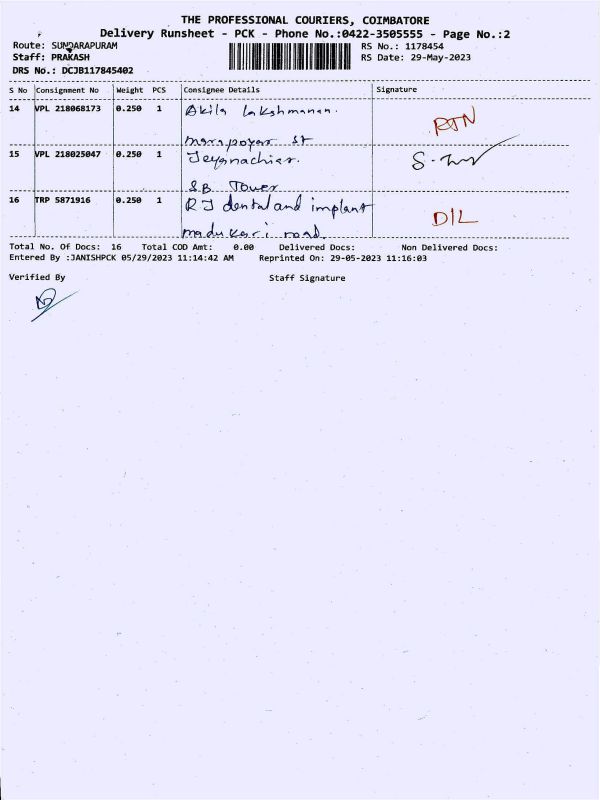 THE PROFESSIONAL COURIERS, COIMBATORE
Delivery Runsheet - PCK - Phone No.:0422-3505555 - Page No.:2
Route: SUNDARAPURAM RS No.: 1178454
Staff: PRAKASH RS Date: 29-May-2023
DRS No.: DCJB117845402
S No Consignment No Weight PCS Consignee Details Signature
14 VPL 218068173 0.250 1 Akila Lakshmanan. RTN
st
15 VPL 218025047 0.250 1 Jeyanachiar.
S.B Tower
16 TRP 5871916 0.250 1 RJ dental and implant D/L
madukari road.
Total No. Of Docs: 16 Total COD Amt: 0.00 Delivered Docs: Non Delivered Docs:
Entered By :JANISHPCK 05/29/2023 11:14:42 AM Reprinted On: 29-05-2023 11:16:03
Verified By Staff Signature